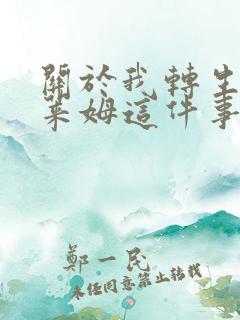 關於我轉生
萊姆這件事
鄭一民
未經同意禁止轉載